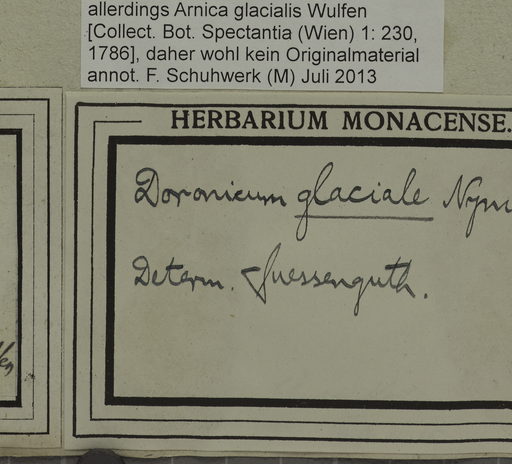 allerdings Arnica glacialis Wulfen
[Collect. Bot. Spectantia (Wien) 1: 230,
1786], daher wohl kein Originalmaterial
annot. F. Schuhwerk (M) Juli 2013
HERBARIUM MONACENSE.
Doronicum glaciale Nym
Determ. Suessenguth.